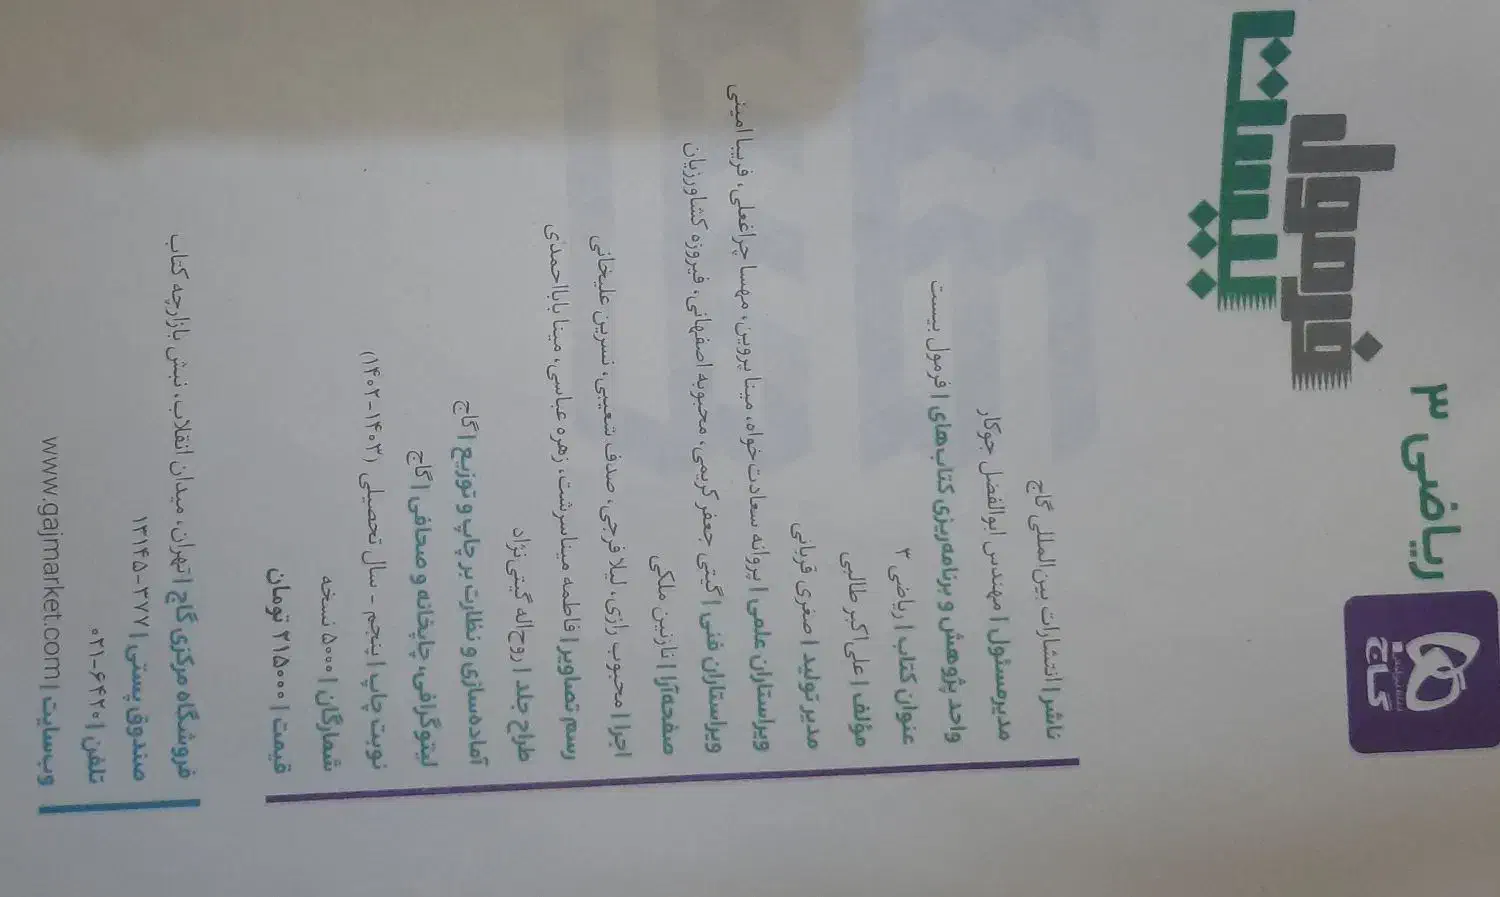 فرمول
بیست
ریاضی ۳
گاج
ناشر | انتشارات بین‌المللی گاج
مدیرمسئول | مهندس ابوالفضل جوکار
واحد پژوهش و برنامه‌ریزی کتاب‌های | فرمول بیست
عنوان کتاب | ریاضی ۳
مؤلف | علی‌اکبر طالبی
مدیر تولید | صغری قربانی
ویراستاران علمی | پروانه سعادت‌خواه، مینا پروین، مهسا چراغعلی، فریبا امینی
ویراستاران فنی | گیتی جعفرکریمی، محبوبه اصفهانی، فیروزه کشاورزیان
صفحه‌آرا | نازنین ملکی
اجرا | محبوب رازی، لیلا فرجی، صدف شعیبی، نسرین علیخانی
رسم تصاویر | فاطمه میناسرشت، زهره عباسی، مینا بابااحمدی
طراح جلد | روح‌اله گیتی‌نژاد
آماده‌سازی و نظارت بر چاپ و توزیع | گاج
لیتوگرافی، چاپخانه و صحافی | گاج
نوبت چاپ | پنجم - سال تحصیلی (۱۴۰۳-۱۴۰۲)
شمارگان | ۵۰۰۰ نسخه
قیمت | ۲۱۵۰۰۰ تومان
فروشگاه مرکزی گاج | تهران، میدان انقلاب، نبش بازارچه کتاب
صندوق پستی | ۳۷۷-۱۳۱۴۵
تلفن | ۶۴۲۰-۰۲۱
وب‌سایت | www.gajmarket.com